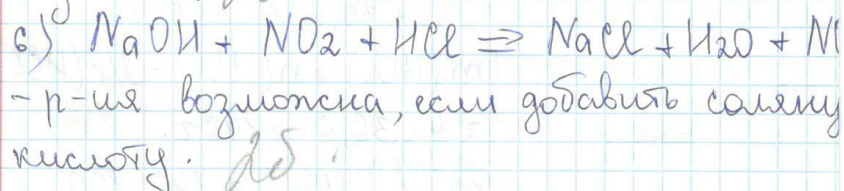 б) NaOH + NO2 + HCl => NaCl + H2O + N
- р-ия возможна, если добавить соляну
кислоту. 2б